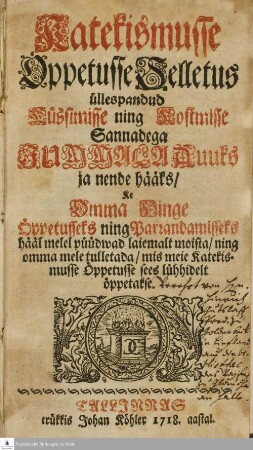 Katekismusse
Öppetusse Selletus
üllespandud
Küssimisse ning Kostmisse
Sannadega
JUMMALA Auuks
ja nende hääks/
Ke
Omma Hinge
Öppetusseks ning Parrandamisseks
hääl melel püüdwad laiemalt moista/ ning
omma mele tulletada/ mis meie Katekis-
musse Öppetusse sees lühhidelt
öppetakse.
TALLINNAS
trükkis Johan Köhler 1718. aastal.